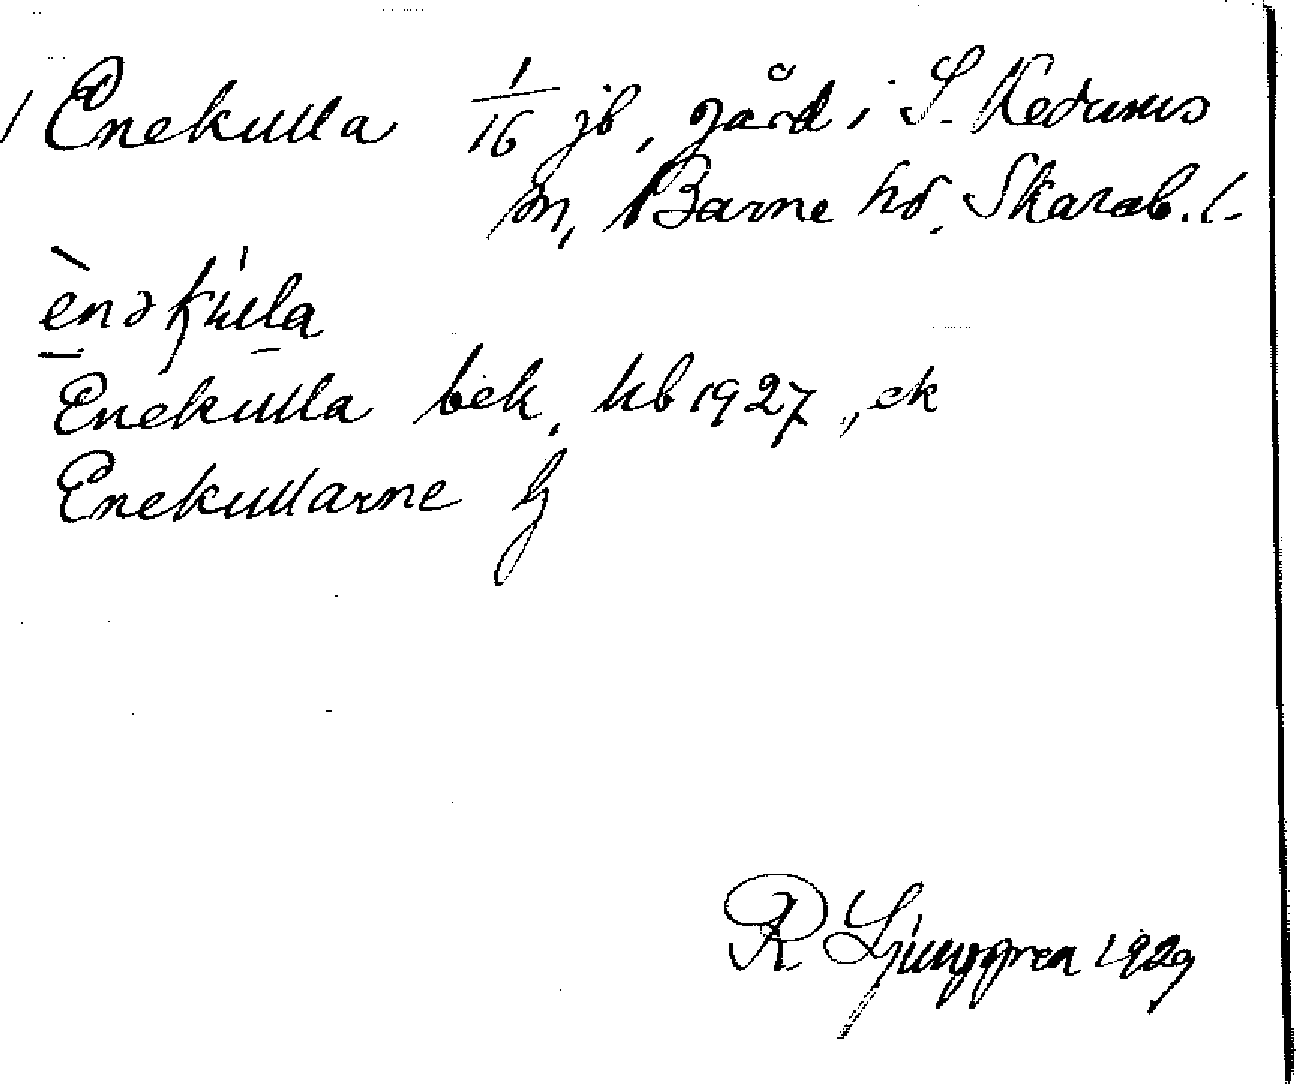 Enekulla 1/16 jb, gård i S. Kedums
sn, Barne hd. Skarab. l.
ènəkúlla
Enekulla bek. kb 1927, ek
Enekullarne
R Ljunggren 1929